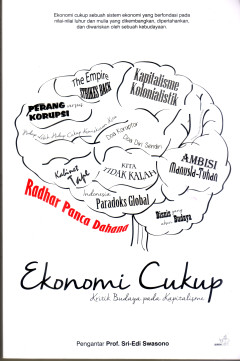 Ekonomi cukup sebuah sistem ekonomi yang berfondasi pada
nilai-nilai luhur dan mulia yang dikembangkan, dipertahankan,
dan diwariskan oleh sebuah kebudayaan.
The Empire
STRIKES BACK
Kapitalisme
Kolonialistik
PERANG
KORUPSI
Doa Koruptor
Doa Diri Sendiri
KITA
TIDAK KALAH
AMBISI
Manusia-Tuhan
Kalimat
Indonesia
Paradoks Global
Bisnis yang
Budaya
Radhar Panca Dahana
Ekonomi Cukup
Kritik Budaya pada Kapitalisme
Pengantar Prof. Sri-Edi Swasono